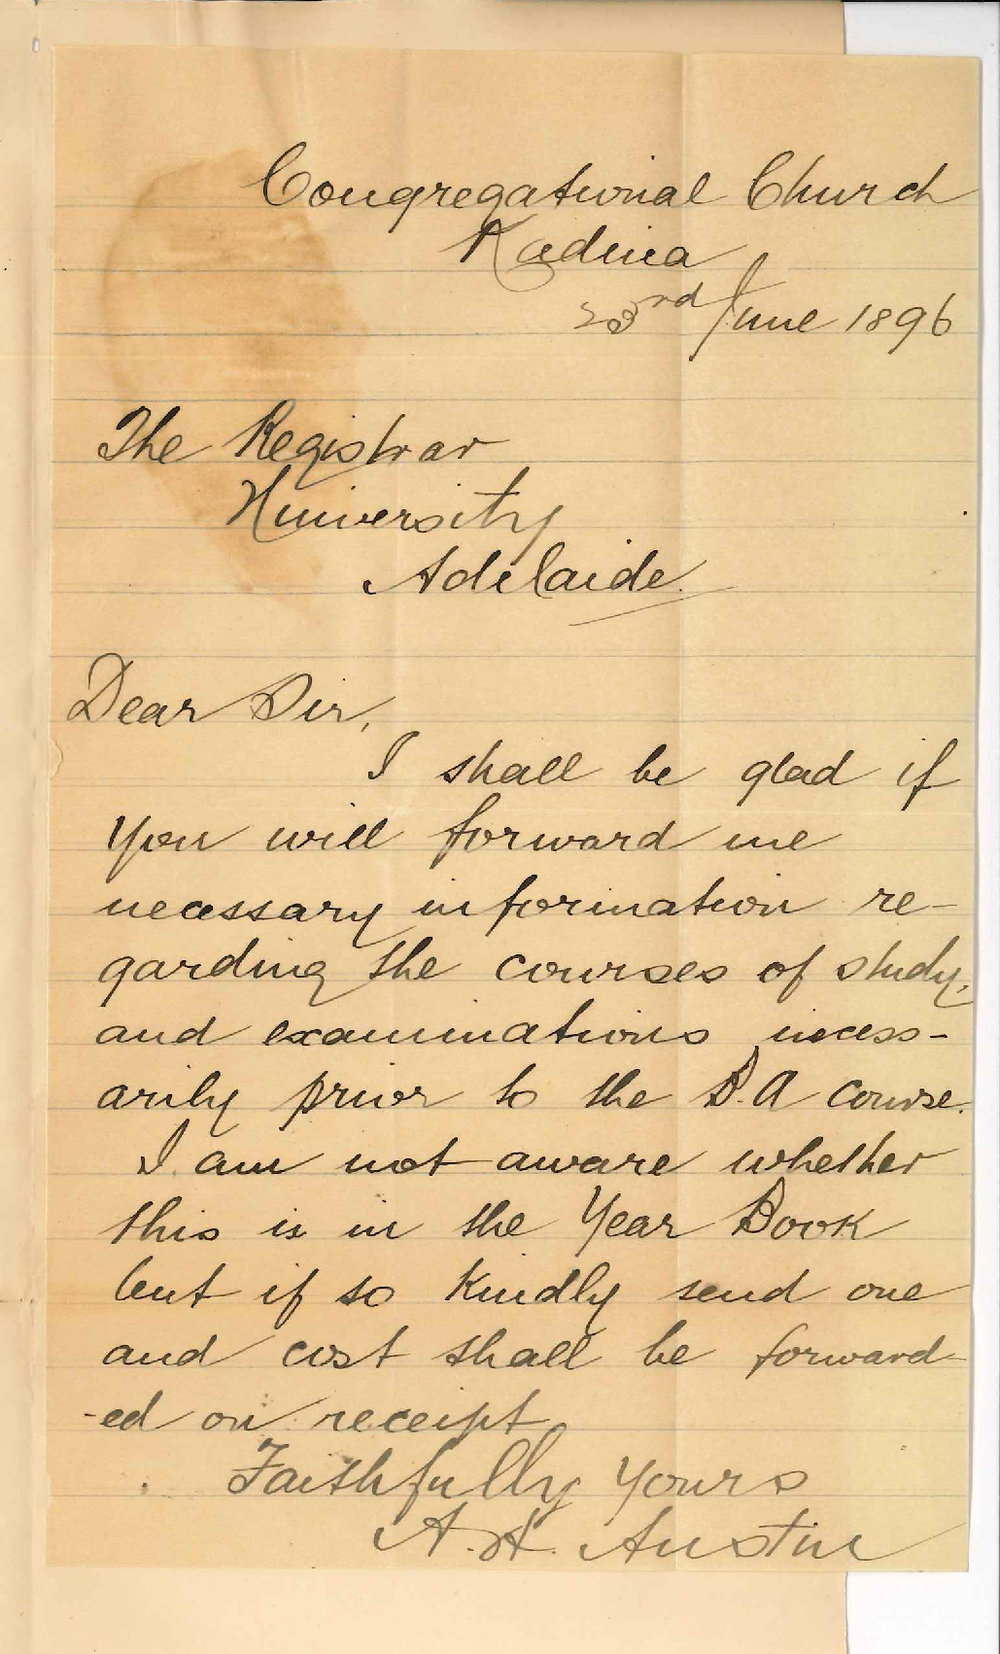 Congregational Church
Kadina
23rd June 1896
The Registrar
University
Adelaide.
Dear Sir,
I shall be glad if
you will forward me
necessary information re-
garding the courses of study,
and examinations necess-
arily prior to the B.A course.
I am not aware whether
this is in the Year Book
but if so kindly send one
and cost shall be forward-
-ed on receipt
Faithfully Yours
A. H. Austin